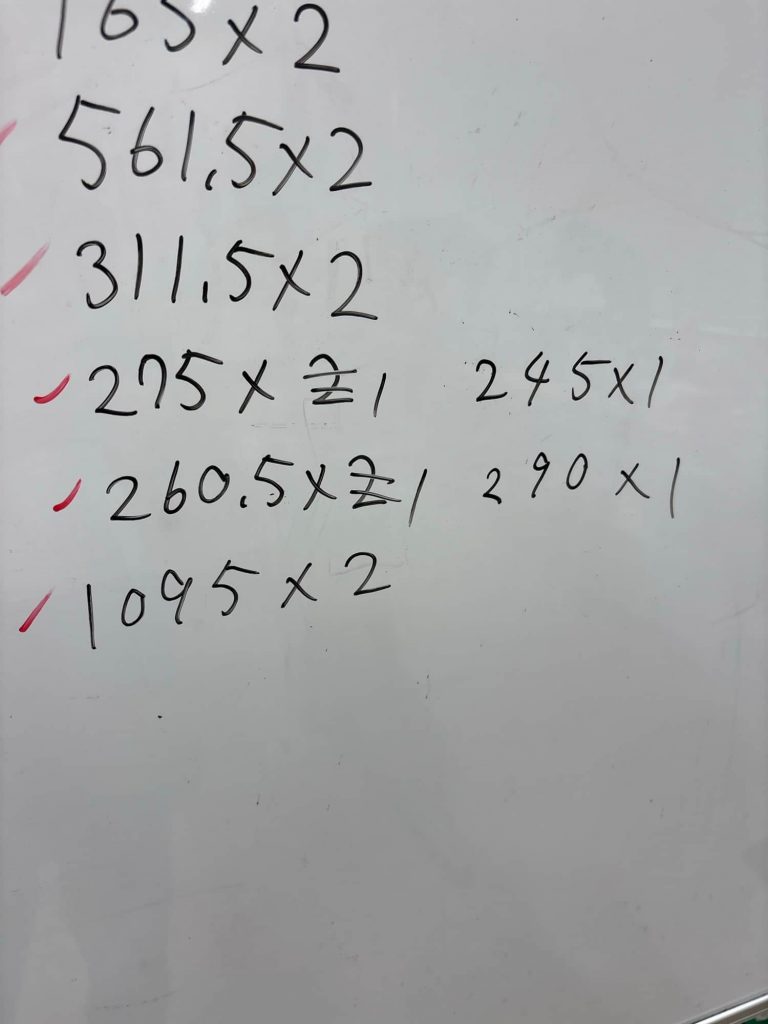 165 x 2
561.5 x 2
311.5 x 2
275 x 2 1 245 x 1
260.5 x 2 1 290 x 1
1095 x 2